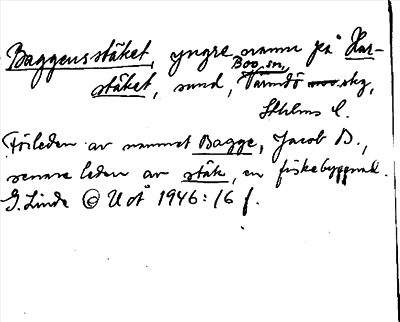 Baggensstäket, yngre namn på Har-
stäket, sund, Boo sn, Värmdö skg,
Sthlms l.
Förleden av namnet Bagge, Jacob B.,
senare leden av stäk, en fiskebyggnad.
G. Linde i UoÅ 1946: 16 f.